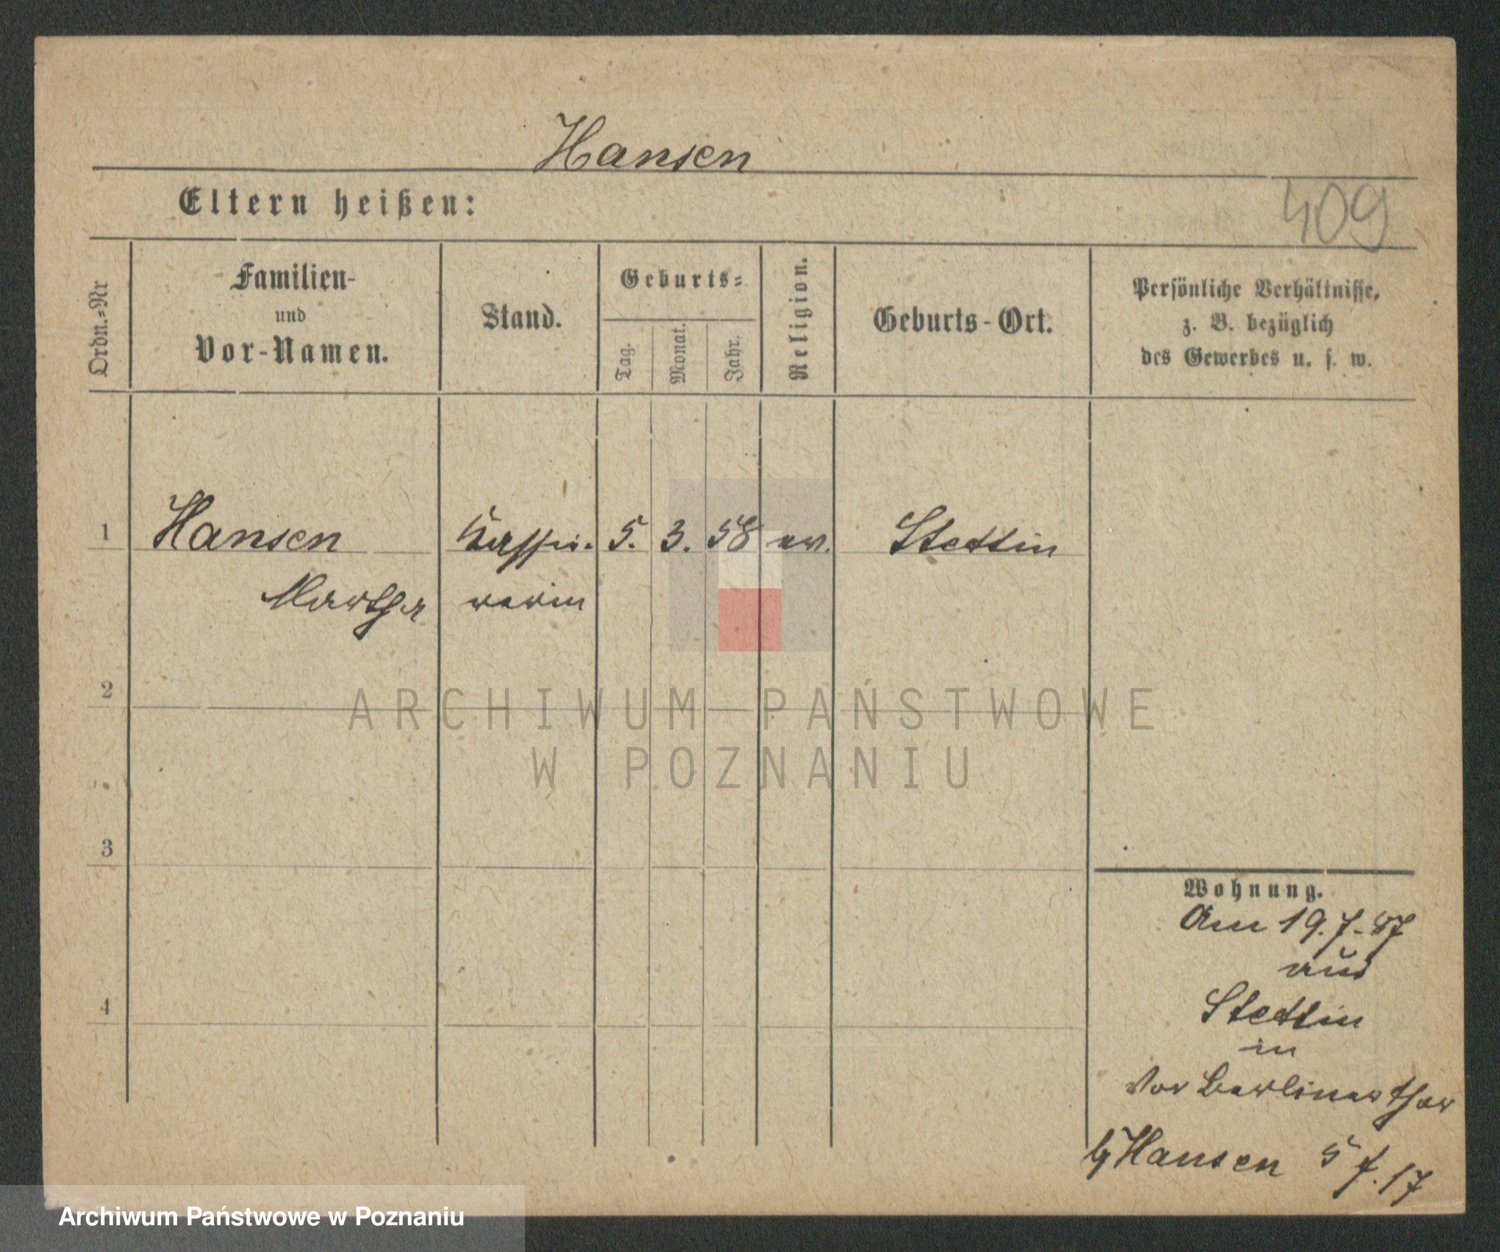 Hansen
Eltern heißen:
409
Ordn.=Nr
Familien-
und
Vor-Namen.
Stand.
Geburts=
Tag.
Monat.
Jahr.
Religion.
Geburts-Ort.
Persönliche Verhältnisse,
z. B. bezüglich
des Gewerbes u. s. w.
1
Hansen
5. 3. 58 ev. Stettin
Martha
2
ARCHIWUM PAŃSTWOWE
W POZNANIU
3
Wohnung.
Am 19.7.87
aus
Stettin
4
in
Vor Berlinerthor
Hansen
Archiwum Państwowe w Poznaniu